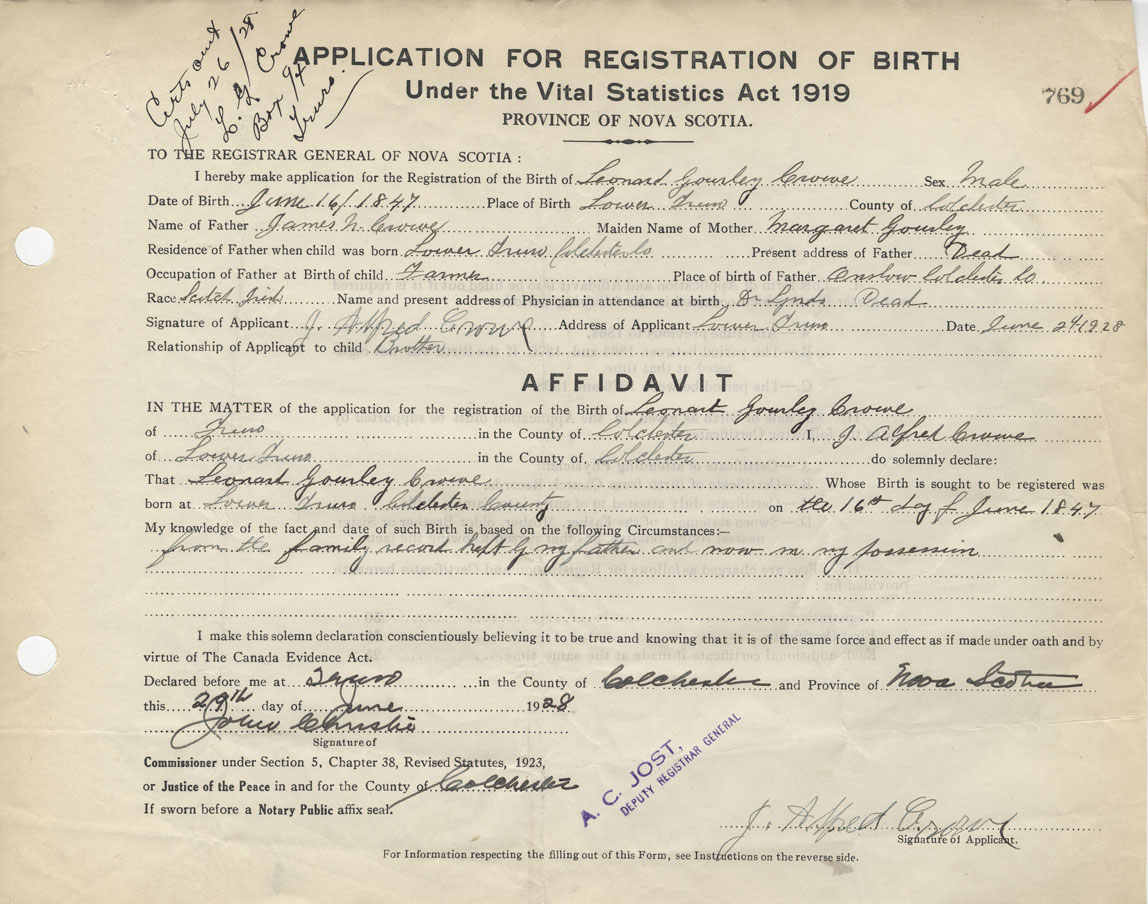 Certs out
July 26/28
L. G. Crowe
Box 94
Truro.
APPLICATION FOR REGISTRATION OF BIRTH
Under the Vital Statistics Act 1919
769
PROVINCE OF NOVA SCOTIA.
TO THE REGISTRAR GENERAL OF NOVA SCOTIA :
I hereby make application for the Registration of the Birth of Leonard Gourley Crowe Sex Male
Date of Birth June 16/1847 Place of Birth Lower Truro County of Colchester
Name of Father James N. Crowe Maiden Name of Mother Margaret Gourley
Residence of Father when child was born Lower Truro Colchester Co Present address of Father Dead
Occupation of Father at Birth of child Farmer Place of birth of Father Onslow Colchester Co.
Race Scotch Irish Name and present address of Physician in attendance at birth Dr Lynds Dead
Signature of Applicant J. Alfred Crowe Address of Applicant Lower Truro Date June 1928
Relationship of Applicant to child Brother
AFFIDAVIT
IN THE MATTER of the application for the registration of the Birth of Leonard Gourley Crowe
of Truro in the County of Colchester I, J Alfred Crowe
of Lower Truro in the County of Colchester do solemnly declare:
That Leonard Gourley Crowe Whose Birth is sought to be registered was
born at Lower Truro Colchester County on the 16th day of June 1847
My knowledge of the fact and date of such Birth is based on the following Circumstances:—
from the family record kept by my father and now in my possession
I make this solemn declaration conscientiously believing it to be true and knowing that it is of the same force and effect as if made under oath and by
virtue of The Canada Evidence Act.
Declared before me at Truro in the County of Colchester and Province of Nova Scotia
this 29th day of June 1928
John Christie
Signature of
Commissioner under Section 5, Chapter 38, Revised Statutes, 1923,
or Justice of the Peace in and for the County of Colchester
If sworn before a Notary Public affix seal.
A. C. JOST,
DEPUTY REGISTRAR GENERAL
J. Alfred Crowe
Signature of Applicant.
For Information respecting the filling out of this Form, see Instructions on the reverse side.